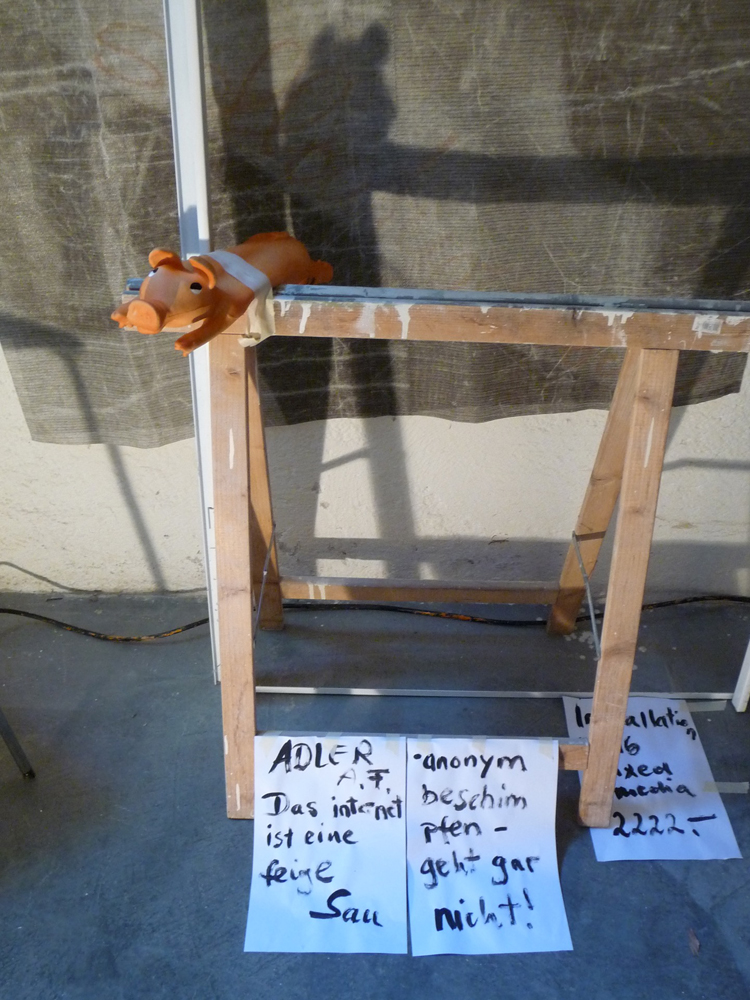 ADLER
A.F.
Das internet
ist eine
feige
Sau
·anonym
beschim
pfen -
geht gar
nicht!
media
2222.-